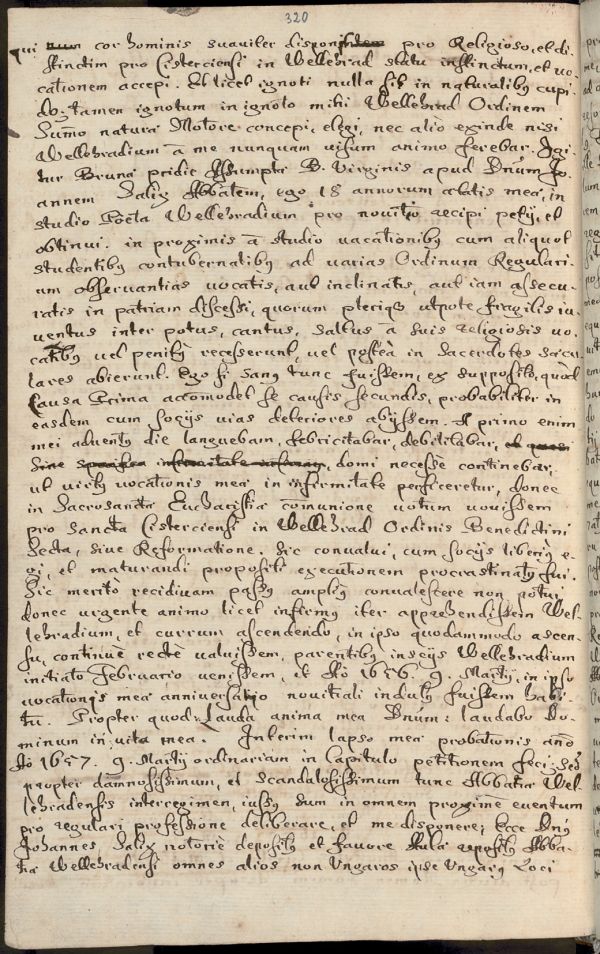 320
qui cor hominis suaviter pro Religioso, et di-
stinctim pro Cisterciensi in Wellehrad statu instinctum, et vo-
cationem accepi. Et licet ignoti nulla sit in naturalibus cupi-
do, tamen ignotum in ignoto mihi Wellehrad Ordinem
Summo naturæ Motore concepi, elegi, nec alio exinde nisi
Wellehradium â me nunquam visum animo ferebar. Igi-
tur Brunæ pridie Assumptæ B. Virginis apud Dnum Jo-
annem Salix Abbatem, ego 18 annorum ætatis meæ, in
studio Poeta Wellehradium pro novitio recipi petij, et
obtinui. in proximis â studio vacationibus cum aliquot
studentibus contubernalibus ad varias Ordinum Regulari-
um observantias vocatis, aut inclinatis, aut iam assecu-
ratis in patriam discessi, quorum plerique utpote fragilis iu-
ventus inter potus, cantus, saltus â suis religiosis vo-
catibus vel penitus recesserunt, vel posteà in Sacerdotes sæcu-
lares abierunt. Ego si sanus tunc fuissem, ex supposito, quòd
Causa Prima accomodet se causis secundis, probabiliter in
easdem cum socijs vias deteriores abijssem. A primo enim
mei adventus die languebam, febricitabar, debilitabar,
domi necesse continebar,
ut virtus vocationis meæ in infirmitate perficeretur, donec
in Sacrosanctæ Eucharistiæ communione votum vovissem
pro Sancta Cisterciensi in Wellehrad Ordinis Benedictini
Secta, sive Reformatione. Sic convalui, cum socijs liberius e-
gi, et maturandi propositi executionem procrastinatus fui.
Sic meritò recidivam passus amplius convalescere non potui,
donec urgente animo licet infirmus iter apprehendissem Wel-
lehradium, et currum ascendendo, in ipso quodammodo ascen-
su, continue rectè valuissem, parentibus inscijs Wellehradium
initiato Februario venissem, et Aô 1656. 9. Martij, in ipso
vocationis meæ anniversario novitiali indutus fuissem habi-
tu. Propter quod: Lauda anima mea Dnum: laudabo Do-
minum in vita mea. Interim lapso meæ probationis anno
Aô 1657. 9. Martij ordinariam in Capitulo petitionem feci; sed
propter damnosissimum, et scandalosissimum tunc Abbatiæ Wel-
lehradensis interregimen, iussus sum in omnem proxime eventum
pro regulari professione deliberare, et me disponere; Ecce Dnus
Johannes Salix notoriè depositus et favore Aulæ repositus Abba-
tiæ Wellehradensi omnes alios non Ungaros ipse Ungarus Loci